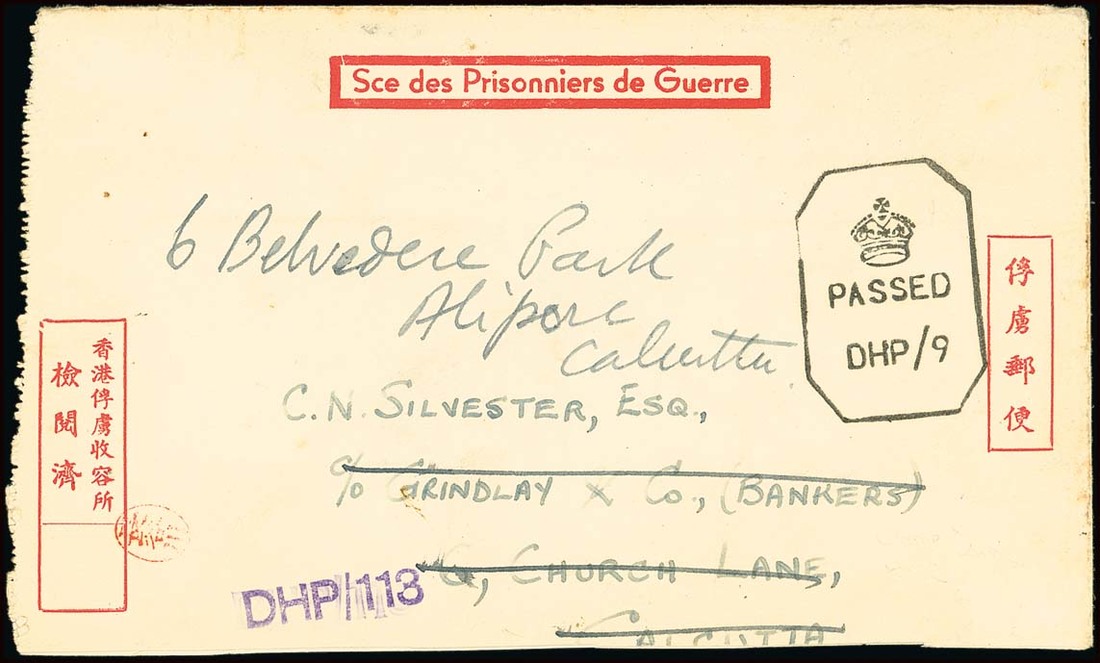 Sce des Prisonniers de Guerre
PASSED
DHP/9
俘虜郵便
6 Belvedere Park
Alipore
Calcutta
C. N. SILVESTER, ESQ.,
c/o GRINDLAY & Co., (BANKERS)
6, CHURCH LANE,
CALCUTTA
香港俘虜收容所
檢閱濟
DHP/113